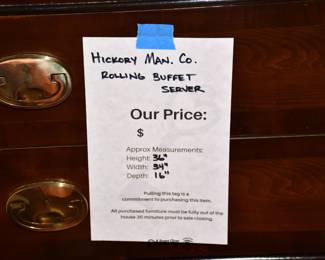 HICKORY MAN. CO.
ROLLING BUFFET
SERVER
Our Price:
$
Approx Measurements:
Height: 36"
Width: 34"
Depth: 16"
Pulling this tag is a
commitment to purchasing this item.
All purchased furniture must be fully out of the
house 30 minutes prior to sale closing.